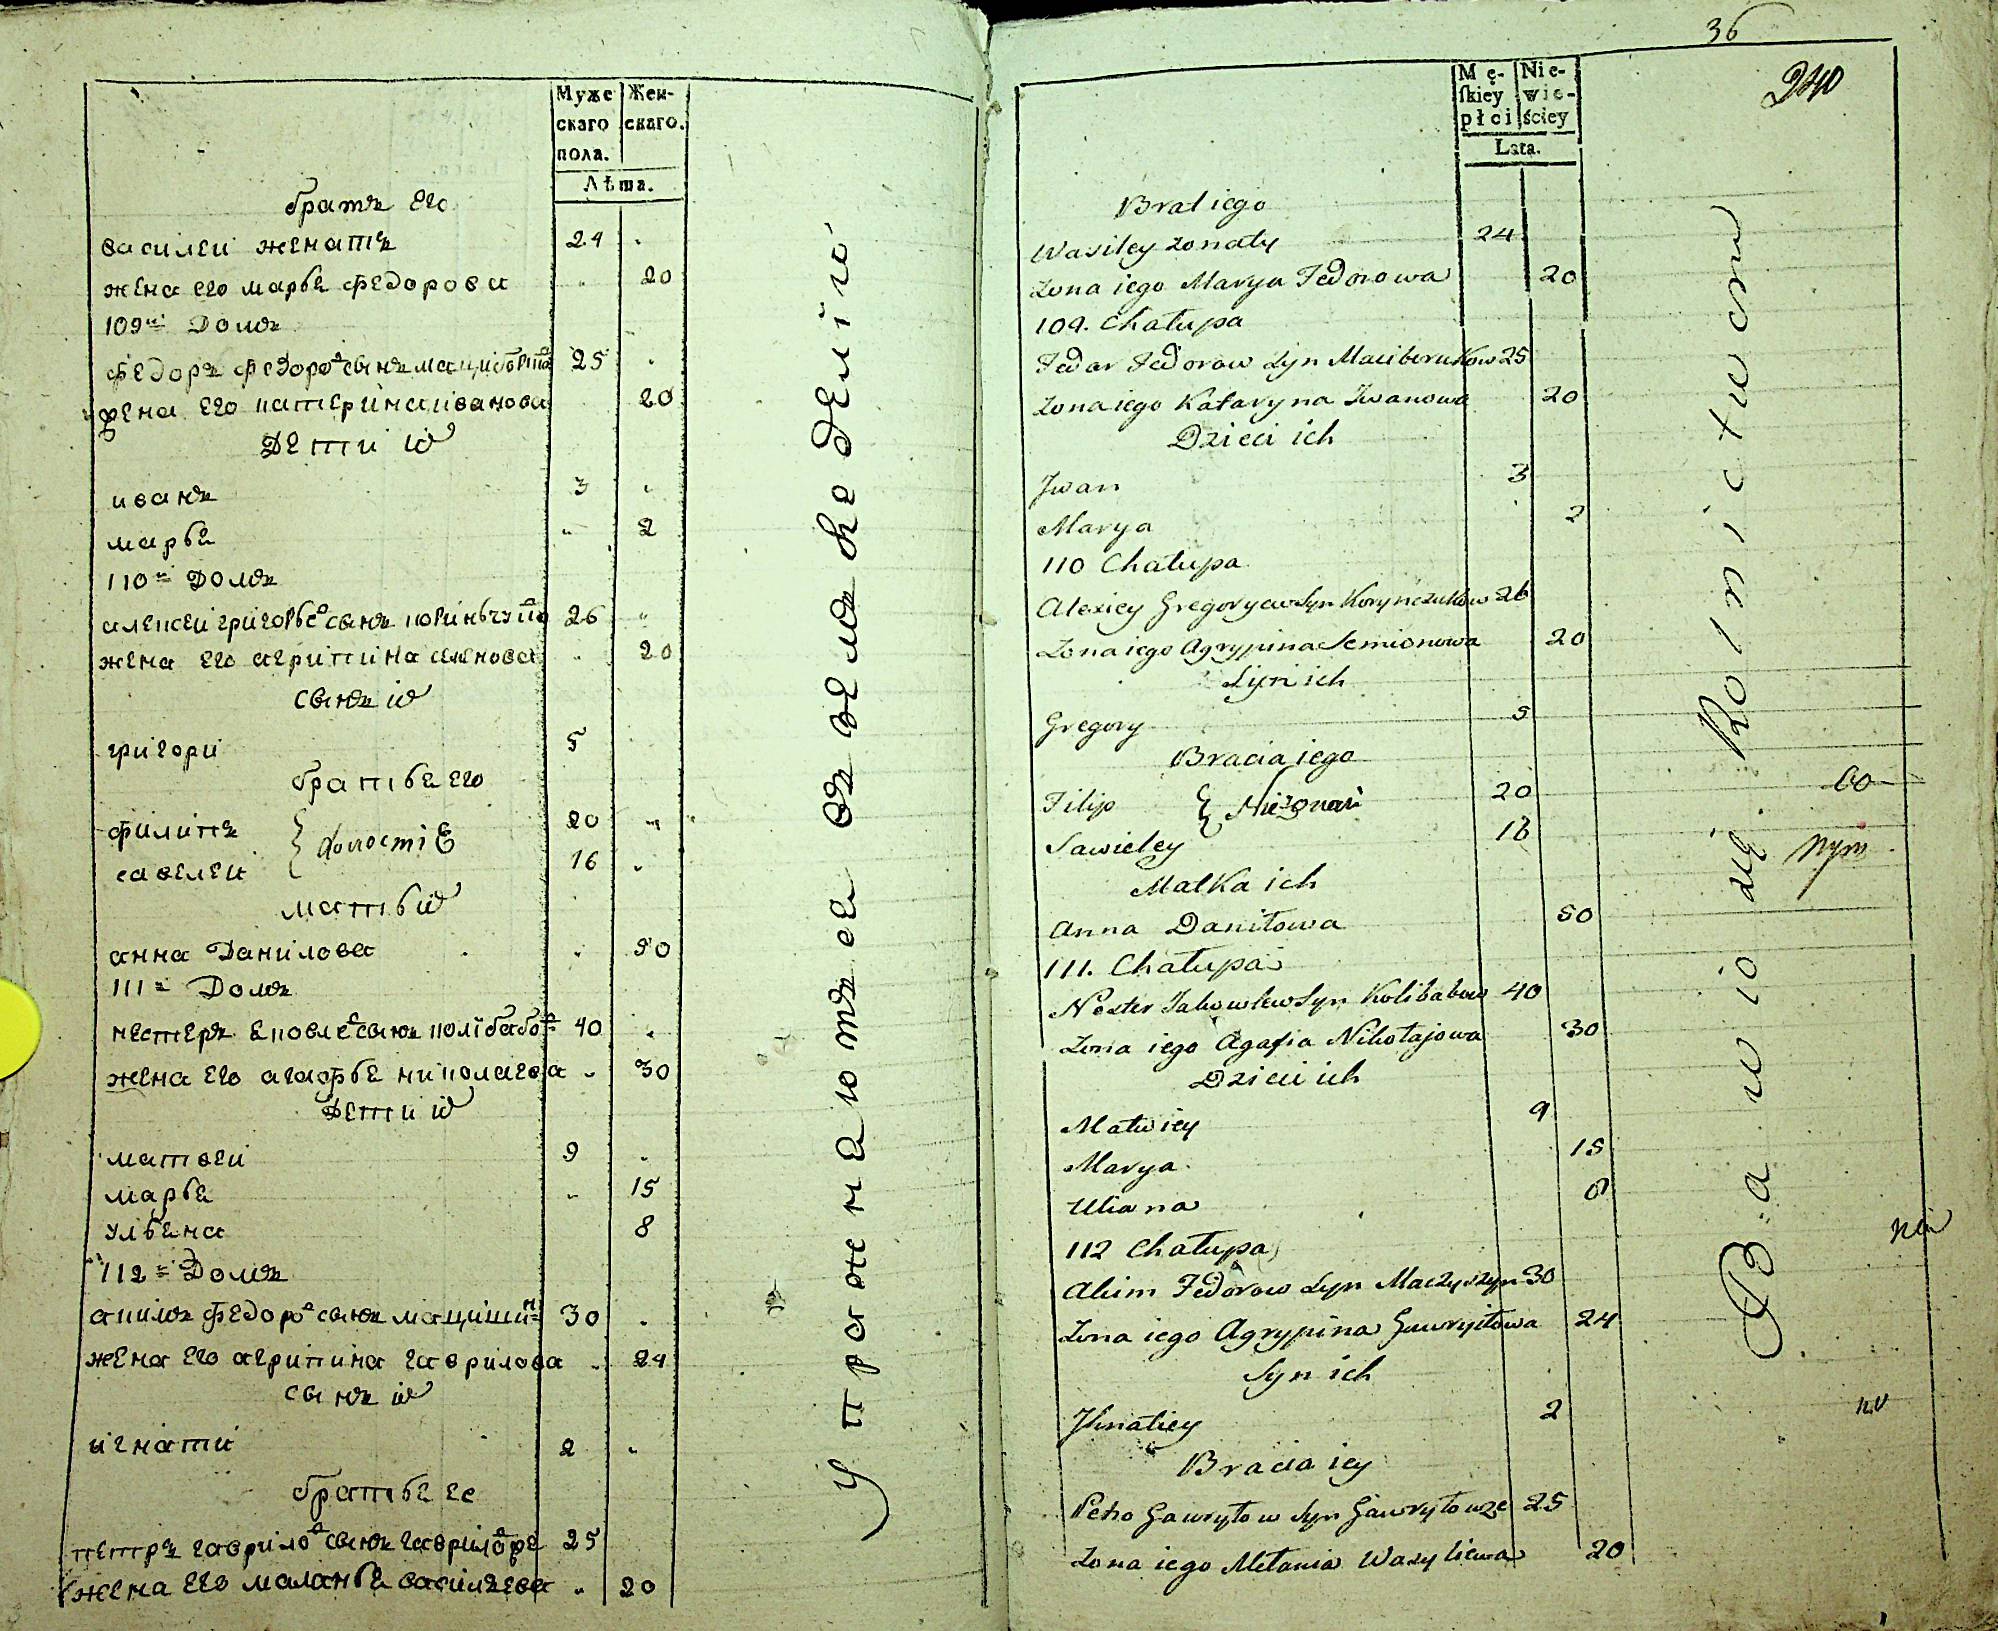 Муже
скаго
пола.
Жен-
скаго.
Лѣта.
братъ его
василеи женатъ 24
жена его марья федорова 20
109й Домъ
федоръ федоровъ сынъ 25
жена его катерина иванова 20
Дети их
иванъ 3
марья 2
110й Домъ
алексеи григорьевъ сынъ 26
жена его агрипина семенова 20
сынъ их
григори 5
братья его
филипъ 20
холостіе
савелеи 16
мать их
анна Данилова 50
111й Домъ
нестеръ яковлевъ сынъ колібабовъ 40
жена его агафья николаева 30
Дети их
матвеи 9
марья 15
ульяна 8
112й Домъ
акимъ федоровъ сынъ мацишинъ 30
жена его агрипина гаврилова 24
сынъ их
игнати 2
братья ее
петръ гавриловъ сынъ 25
жена его маланья василяева 20
Упражняются въ земледеліи
36
240
Mę-
ſkiey
płci
Nie-
wie-
ściey
Lata.
Brat iego
Wasiley zonaty 24
Zona iego Marya Fedorowa 20
109. Chałupa
Fedor Fedorow Syn Maciborukow 25
Zona iego Kataryna Iwanowa 20
Dzieci ich
Iwan 3
Marya 2
110 Chałupa
Alexiey Gregoryew Syn Korynczukow 26
Zona iego Agrypina Semionowa 20
Syn ich
Gregory 5
Bracia iego
Filip 20
Nieżonaci
Sawieley 16
Matka ich
Anna Daniłowa 50
111. Chałupa
Nester Jakowlew Syn Kolibabow 40
Zona iego Agafia Nikołajowa 30
Dzieci ich
Matwiey 9
Marya 15
Uliana 8
112 Chałupa
Akim Fedorow Syn Maczyszyn 30
Zona iego Agrypina Gawryłowa 24
Syn ich
Ihnatiey 2
Bracia iey
Petro Gawryłow Syn 25
Zona iego Melania Wasyliewa 20
Bawio się Rolnictwem